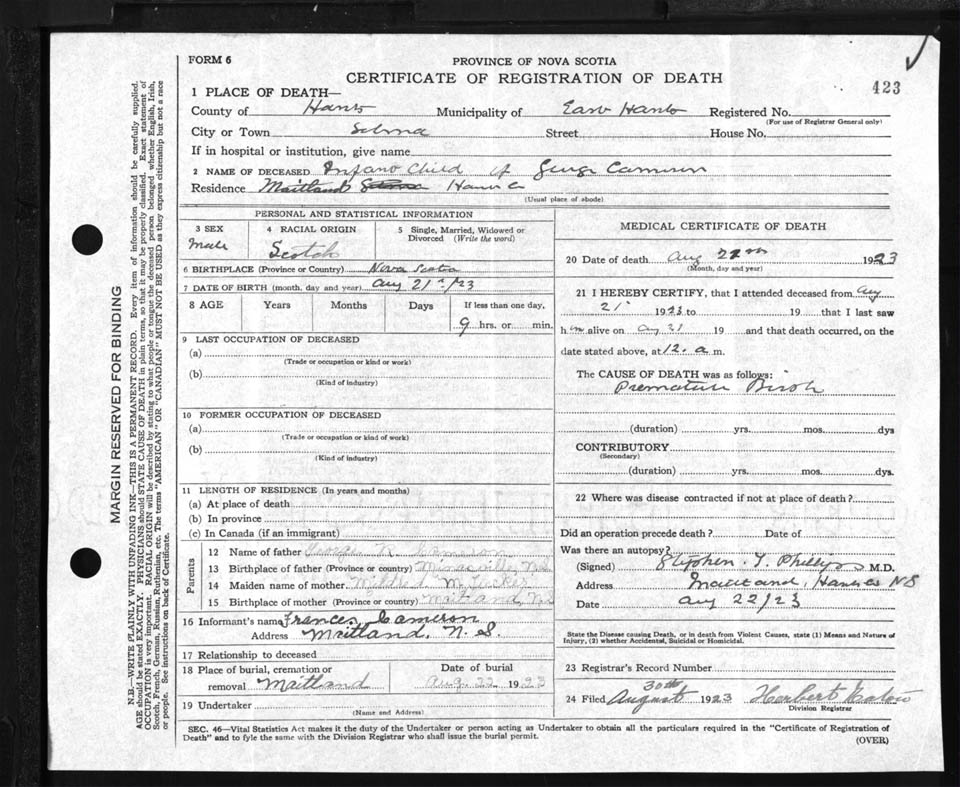 FORM 6
PROVINCE OF NOVA SCOTIA
CERTIFICATE OF REGISTRATION OF DEATH
423
1 PLACE OF DEATH—
County of Hants Municipality of East Hants Registered No.
(For use of Registrar General only)
City or Town Selma Street House No.
If in hospital or institution, give name
2 NAME OF DECEASED Infant Child of George Cameron
Residence Maitland Selma Hants Co
(Usual place of abode)
PERSONAL AND STATISTICAL INFORMATION
3 SEX 4 RACIAL ORIGIN 5 Single, Married, Widowed or Divorced (Write the word)
Male Scotch
6 BIRTHPLACE (Province or Country) Nova Scotia
7 DATE OF BIRTH (month, day and year) Aug 21st/23
8 AGE Years Months Days If less than one day,
9 hrs. or min.
9 LAST OCCUPATION OF DECEASED
(a)
(Trade or occupation or kind of work)
(b)
(Kind of industry)
10 FORMER OCCUPATION OF DECEASED
(a)
(Trade or occupation or kind of work)
(b)
(Kind of industry)
11 LENGTH OF RESIDENCE (In years and months)
(a) At place of death
(b) In province
(c) In Canada (if an immigrant)
Parents
12 Name of father George R Cameron
13 Birthplace of father (Province or country) Minasville, N.S.
14 Maiden name of mother Mildred M Tucker
15 Birthplace of mother (Province or country) Maitland, N.S
16 Informant's name Frances Cameron
Address Maitland, N. S.
17 Relationship to deceased
18 Place of burial, cremation or removal Maitland
Date of burial
Aug. 22 1923
19 Undertaker
(Name and Address)
MEDICAL CERTIFICATE OF DEATH
20 Date of death Aug 22nd 1923
(Month, day and year)
21 I HEREBY CERTIFY, that I attended deceased from Aug
21 1923 to 19 that I last saw
him alive on Aug 21 19 and that death occurred, on the
date stated above, at 12. a m.
The CAUSE OF DEATH was as follows:
Premature Birth
(duration) yrs. mos. dys
CONTRIBUTORY
(Secondary)
(duration) yrs. mos. dys.
22 Where was disease contracted if not at place of death?
Did an operation precede death? Date of
Was there an autopsy?
(Signed) Stephen Y. Phillips M.D.
Address Maitland, Hants Co NS
Date Aug 22/23
State the Disease causing Death, or in death from Violent Causes, state (1) Means and Nature of
Injury, (2) whether Accidental, Suicidal or Homicidal.
23 Registrar's Record Number
24 Filed August 30th 1923 Herbert
Division Registrar
SEC. 46—Vital Statistics Act makes it the duty of the Undertaker or person acting as Undertaker to obtain all the particulars required in the "Certificate of Registration of
Death" and to fyle the same with the Division Registrar who shall issue the burial permit.
(OVER)
MARGIN RESERVED FOR BINDING
N.B.—WRITE PLAINLY WITH UNFADING INK—THIS IS A PERMANENT RECORD. Every item of information should be carefully supplied.
AGE should be stated EXACTLY. PHYSICIANS should STATE CAUSE OF DEATH in plain terms, so that it may be properly classified. Exact statement of
OCCUPATION is very important. RACIAL ORIGIN will be described by stating to what people or tongue the deceased person belonged whether English, Irish,
Scotch, French, German, Russian, Ruthenian, etc. The terms "AMERICAN" OR "CANADIAN" MUST NOT BE USED as they express citizenship but not a race
or people. See instructions on back of Certificate.